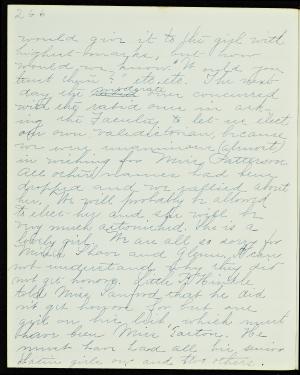 266
would give it to the girl with
highest marks, but how
would we know? Would you
trust them?" etc. etc. The next
day the moderate ones concurred
with the rabid ones in ask-
ing the Faculty to let us elect
our own valedictorian, because
we were unanimous (almost)
in wishing for Miss Patterson.
All other names had been
dropped and we rallied about
her. We will probably be allowed
to elect her and she will be
very much astonished. She is a
lovely girl. We are all so sorry for
Minnie and I can
not understand why they did
not get honors. Little
told Miss Sanford that he did
not get honors for but one
girl on his list, which must
have been Miss He
must have had all his
girls on and the others.